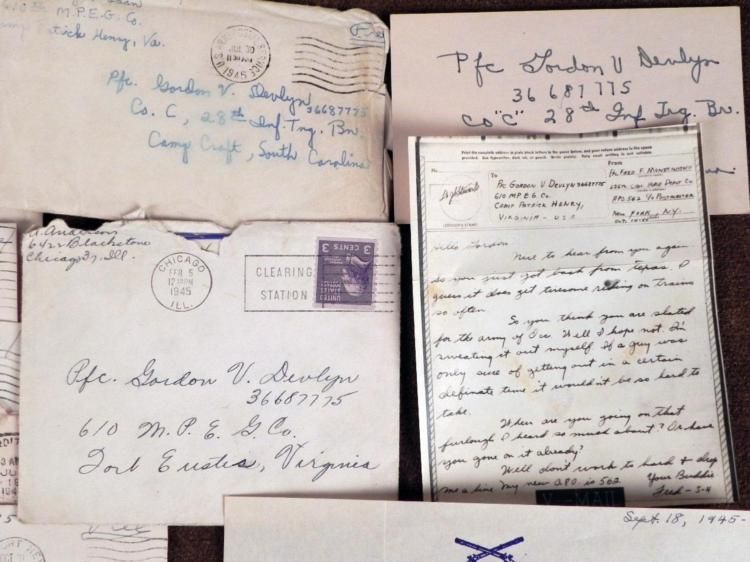 M.P.E.G. Co.
Patrick Henry, Va.
1945
Pfc. Gordon V. Devlyn
36687775
Co. C, 28th Inf. Tng. Bn.
Camp Croft, South Carolina
Pfc Gordon V Devlyn
36 687 775
CO "C" 28th Inf Trg. Bn.
Anderson
6422 Blackstone
Chicago 37, Ill.
CHICAGO
FEB 5
1945
ILL.
CLEARING
STATION
3 CENTS
UNITED STATES POSTAGE
Pfc. Gordon V. Devlyn
36687775
610 M. P. E. G. Co.
Fort Eustis, Virginia
Print the complete address in plain block letters in the panel below, and your return address in the space
provided. Use typewriter, dark ink, or pencil. Write plainly. Very small writing is not suitable.
No.
To
From
PFC GORDON V DEVLYN 36687775
610 M.P.E.G. Co.
CAMP PATRICK HENRY,
VIRGINIA - USA
FRED F.
APO 562 % POSTMASTER
NEW YORK, N.Y.
Hello Gordon
Nice to hear from you again
so you just got back from Texas. I
guess it does get tiresome riding on trains
so often.
So you think you are slated
for the army of Occ. Well I hope not. I'm
sweating it out myself. If a guy was
only sure of getting out in a certain
definate time it wouldn't be so hard to
take.
When are you going on that
furlough I heard so much about? Or have
you gone on it already?
Well don't work to hard & drop
me a line. My new APO is 562
Your Buddie
Fred
V - MAIL
Sept. 18, 1945-